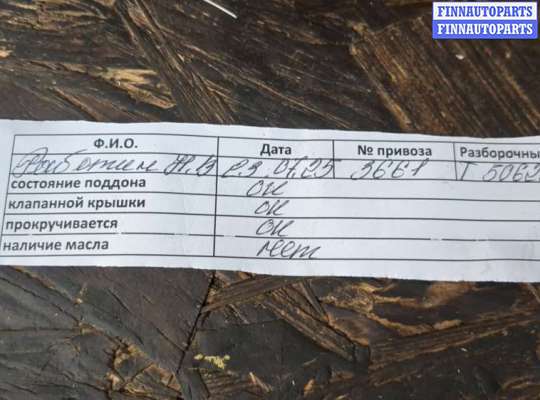 FINNAUTOPARTS
FINNAUTOPARTS
Ф.И.О. Дата № привоза Разборочны
Работин Н.В 23.07.25 3661 Т 5062
состояние поддона ок
клапанной крышки ок
прокручивается ок
наличие масла нет